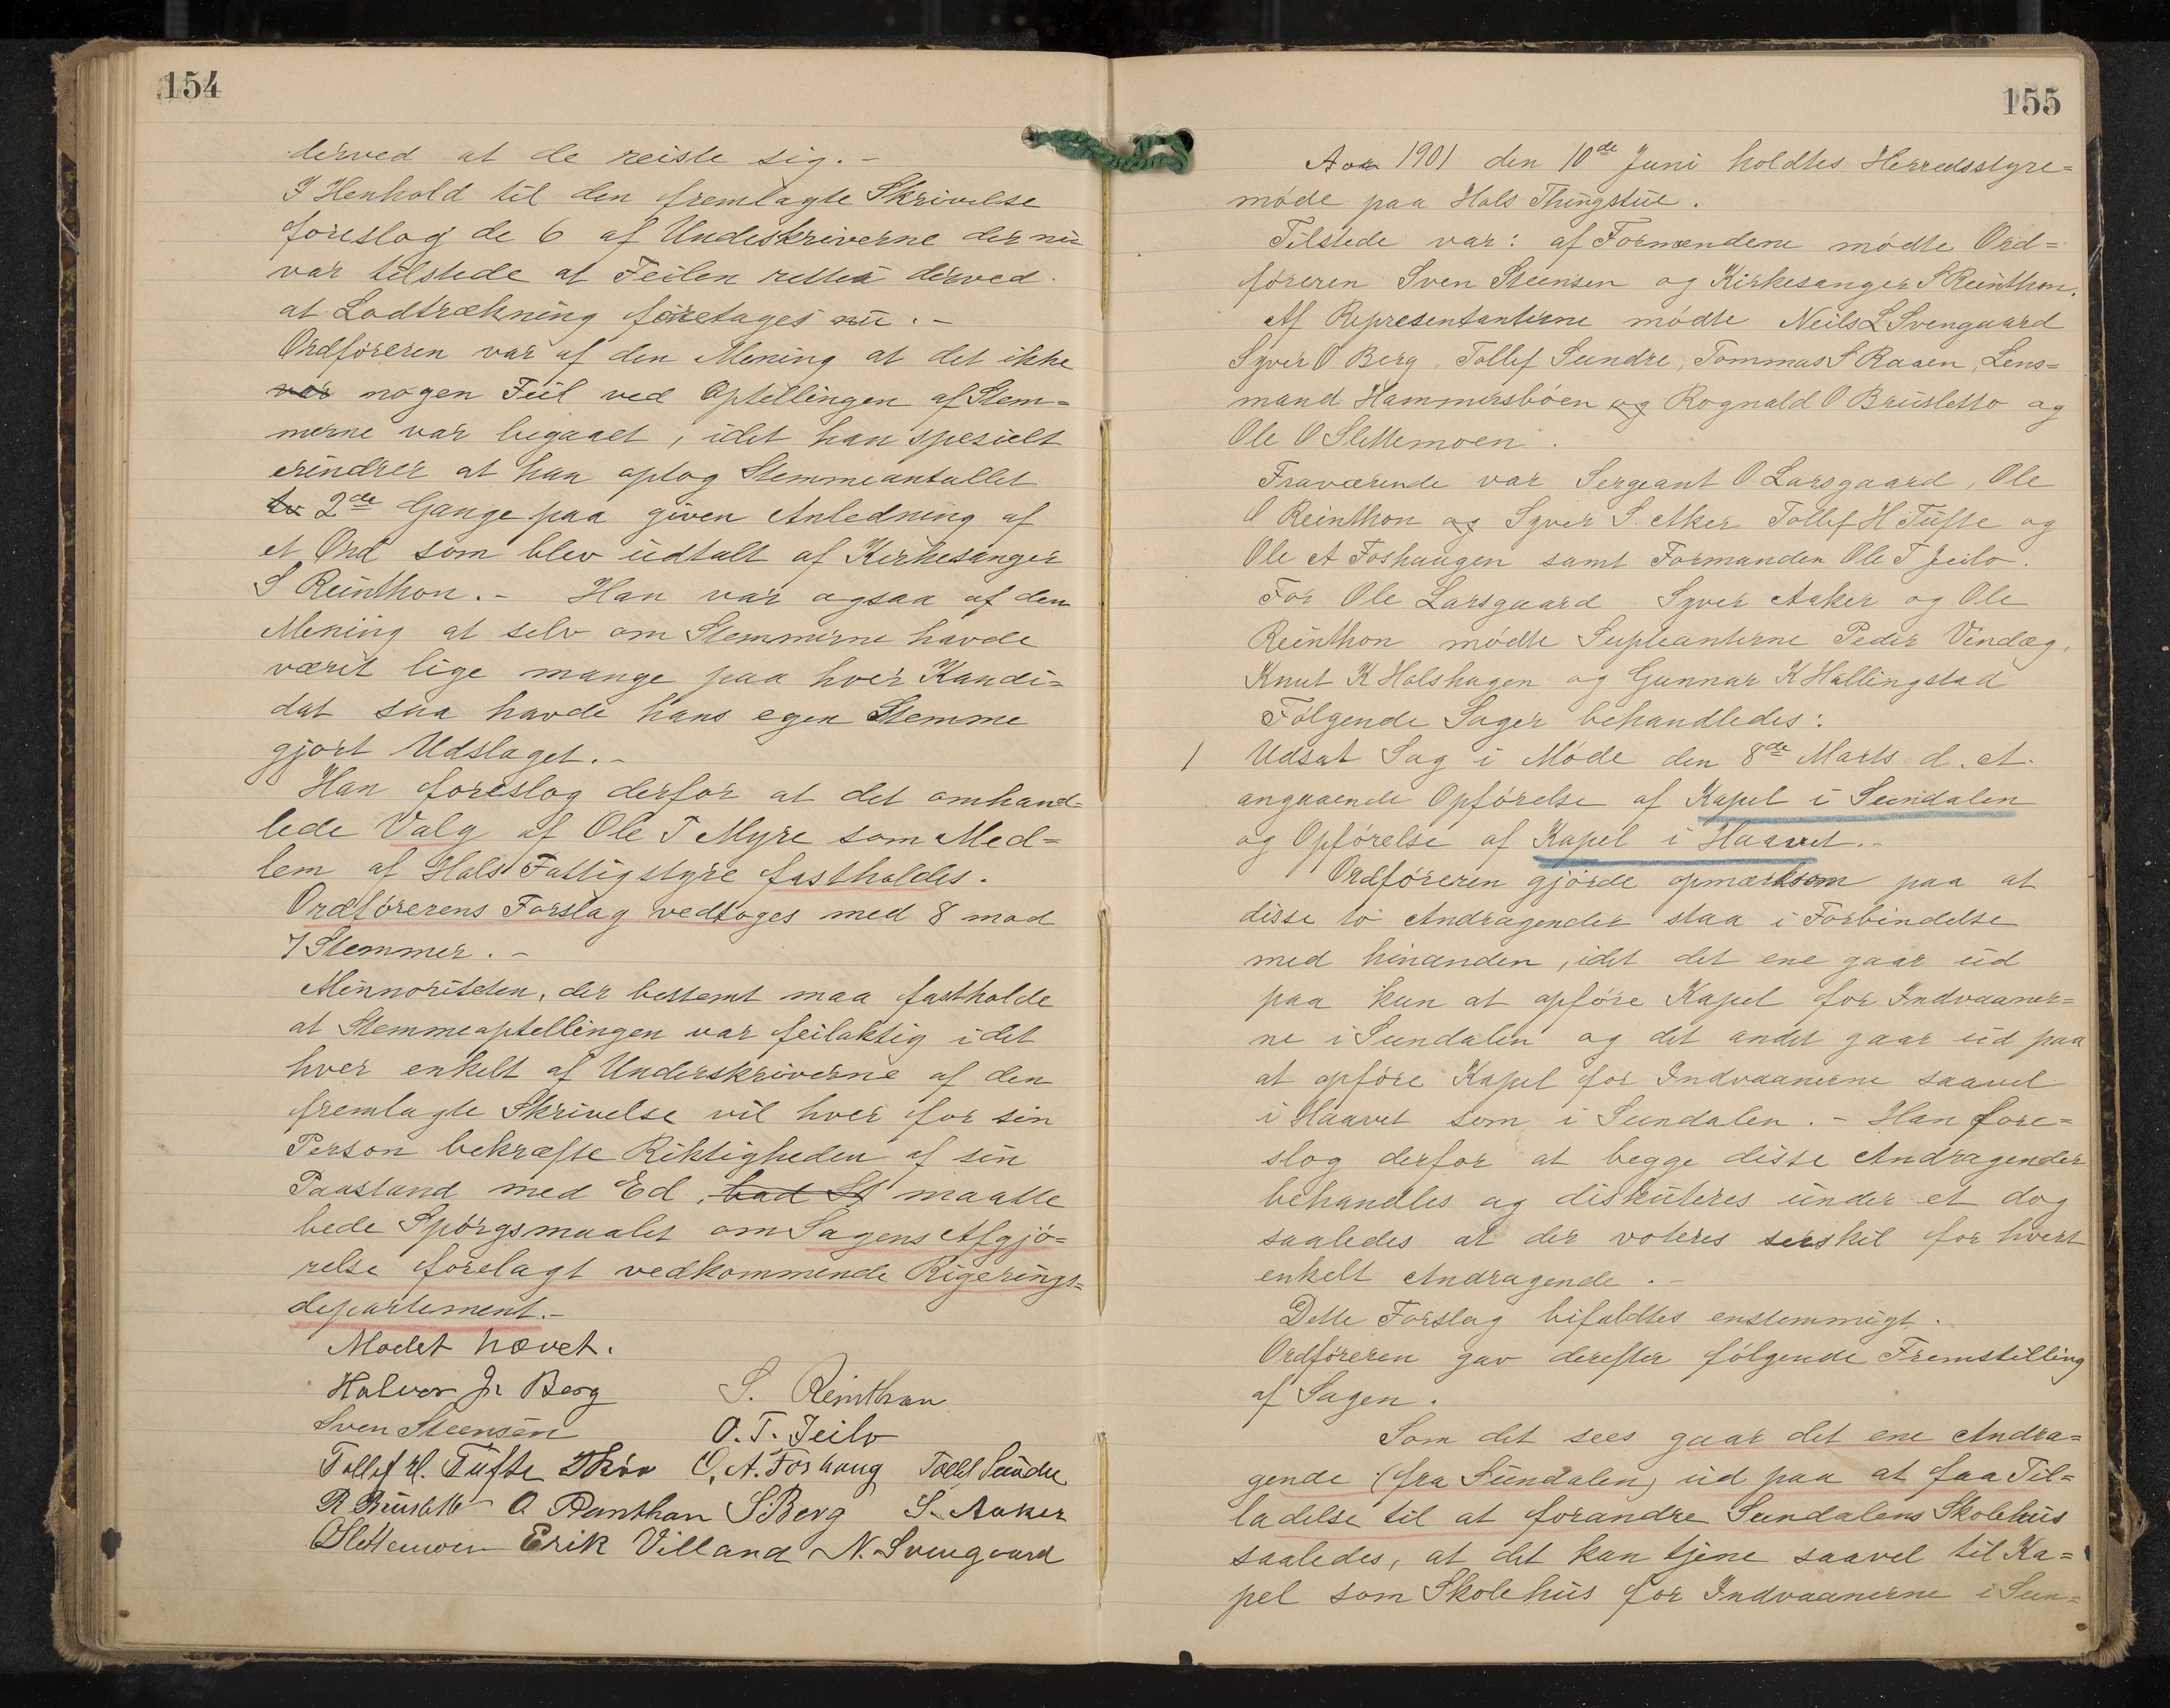 154
derved at de reiste sig. -
I Henhold til den fremlagte Skrivelse
foreslog de 6 af Undeskriverne der nu
var tilstede at Feilen rettes derved
at Lodtrækning foretages nu. -
Ordføreren var af den Mening at det ikke
var nogen Feil ved Optellingen af Stem=
merne var begaaet, idet han spesielt
erindrer at han optog Stemmeantallet
to 2de Gange paa given Anledning af
et Ord som blev udtalt af Kirkesanger
S Reinthon. - Han var ogsaa af den
Mening at selv om Stemmerne havde
værit lige mange paa hver Kandi=
dat saa havde hans egen Stemme
gjort Udslaget. -
Han foreslog derfor at det omhand=
lede Valg af Ole T Myre som Med=
lem af Hols Fattigstyre fastholdes.
Ordførerens Forslag vedtoges med 8 mod
7 Stemmer. -
Minnoriteten, der bestemt maa fastholde
at Stemmeoptellingen var feilaktig idet
hver enkelt af Underskriverne af den
fremlagte Skrivelse vil hver for sin
Person bekræfte Riktigheden af sin
Paastand med Ed, bad St maatte
bede Spørgsmaalet om Sagens Afgjø=
relse forelagt vedkommende Rigerings=
departement. -
Mødet hævet.
Halvor Jr Berg S. Reinthon
Sven Steensen O. T. Jeilo
Tollef H. Tufte O. A. Foshaug Tollef Sundre
R Brusletto O Reinthon S Berg S. Aaker
O Slettemoen Erik Villand N. Svengaard
155
Aar 1901 den 10de Juni holdtes Herredsstyre=
møde paa Hols Thingstue.
Tilstede var: af Formændene mødte Ord=
føreren Sven Steensen og Kirkesanger S Reinthon.
Af Representanterne mødte Neils L Svengaard
Syver O Berg, Tollef Sundre, Tommas S Raaen, Lens=
mand Hammersbøen og Rognald O Brusletto og
Ole O Slettemoen.
Fraværende var Sergeant O Larsgaard, Ole
O Reinthon og Syver S. Aker Tollef H Tufte og
Ole A Foshaugen samt Formanden Ole T Jeilo.
For Ole Larsgaard Syver Aaker og Ole
Reinthon mødte Supleanterne Peder Vindæg,
Knut K Holshagen og Gunnar K Hallingstad
Følgende Sager behandledes:
1 Udsat Sag i Møde den 8de Marts d. A.
angaaende Opførelse af Kapel i Sundalen
og Opførelse af Kapel i Haavet. -
Ordføreren gjorde opmærksom paa at
disse to Andragender staa i Forbindelse
med hinanden, idet det ene gaar ud
paa kun at opføre Kapel for Indvaaner=
ne i Sundalen og det andet gaar ud paa
at opføre Kapel for Indvaanerne saavel
i Haavet som i Sundalen. - Han fore=
slog derfor at begge disse Andragender
behandles og diskuteres under et dog
saaledes at der voteres serskil for hvert
enkelt Andragende. -
Dette Forslag bifaldtes enstemmigt.
Ordføreren gav derefter følgende Fremstilling
af Sagen.
Som det sees gaar det ene Andra=
gende (fra Sundalen) ud paa at faa Til=
ladelse til at forandre Sundalens Skolehus
saaledes, at det kan tjene saavel til Ka=
pel som Skolehus for Indvaanerne i Sun=